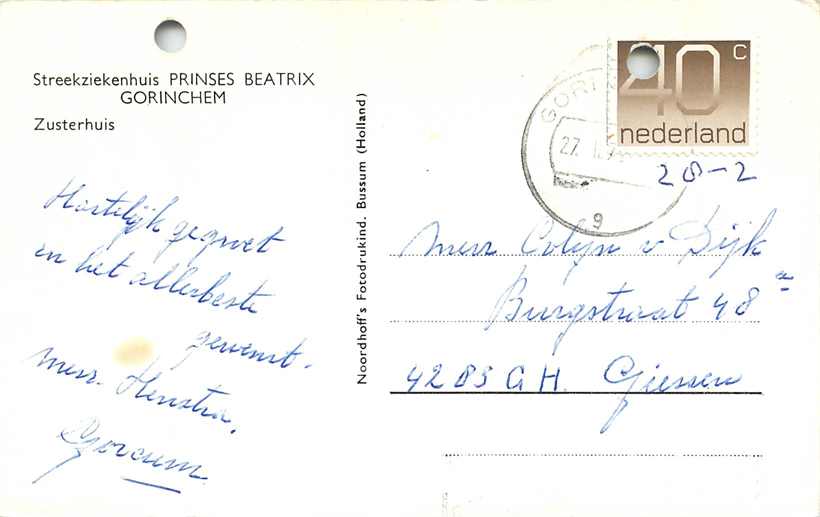 Streekziekenhuis PRINSES BEATRIX
GORINCHEM
Zusterhuis
Hartelijk gegroet
en het allerbeste
gewenst.
Mevr. Henstra,
Gorcum
Noordhoff's Fotodrukind. Bussum (Holland)
40 c
nederland
GORIN
27.
9
28-2
Mevr Colijn v Dijk
Burgstraat 48a
4283 GH. Giessen